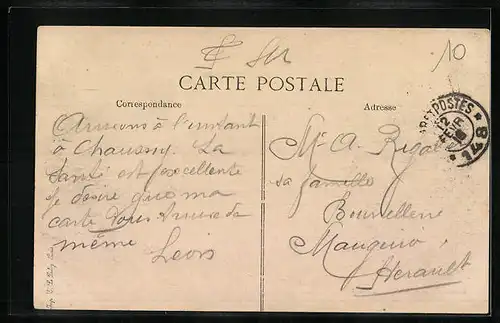 10
CARTE POSTALE
Correspondance
Adresse
Arrivons à l'instant
à Chaussy. La
santé est excellente
Je désire que ma
carte vous trouve de
même
Mr A. Rigal
sa famille
Mauguio,
Hérault
POSTES
12
148